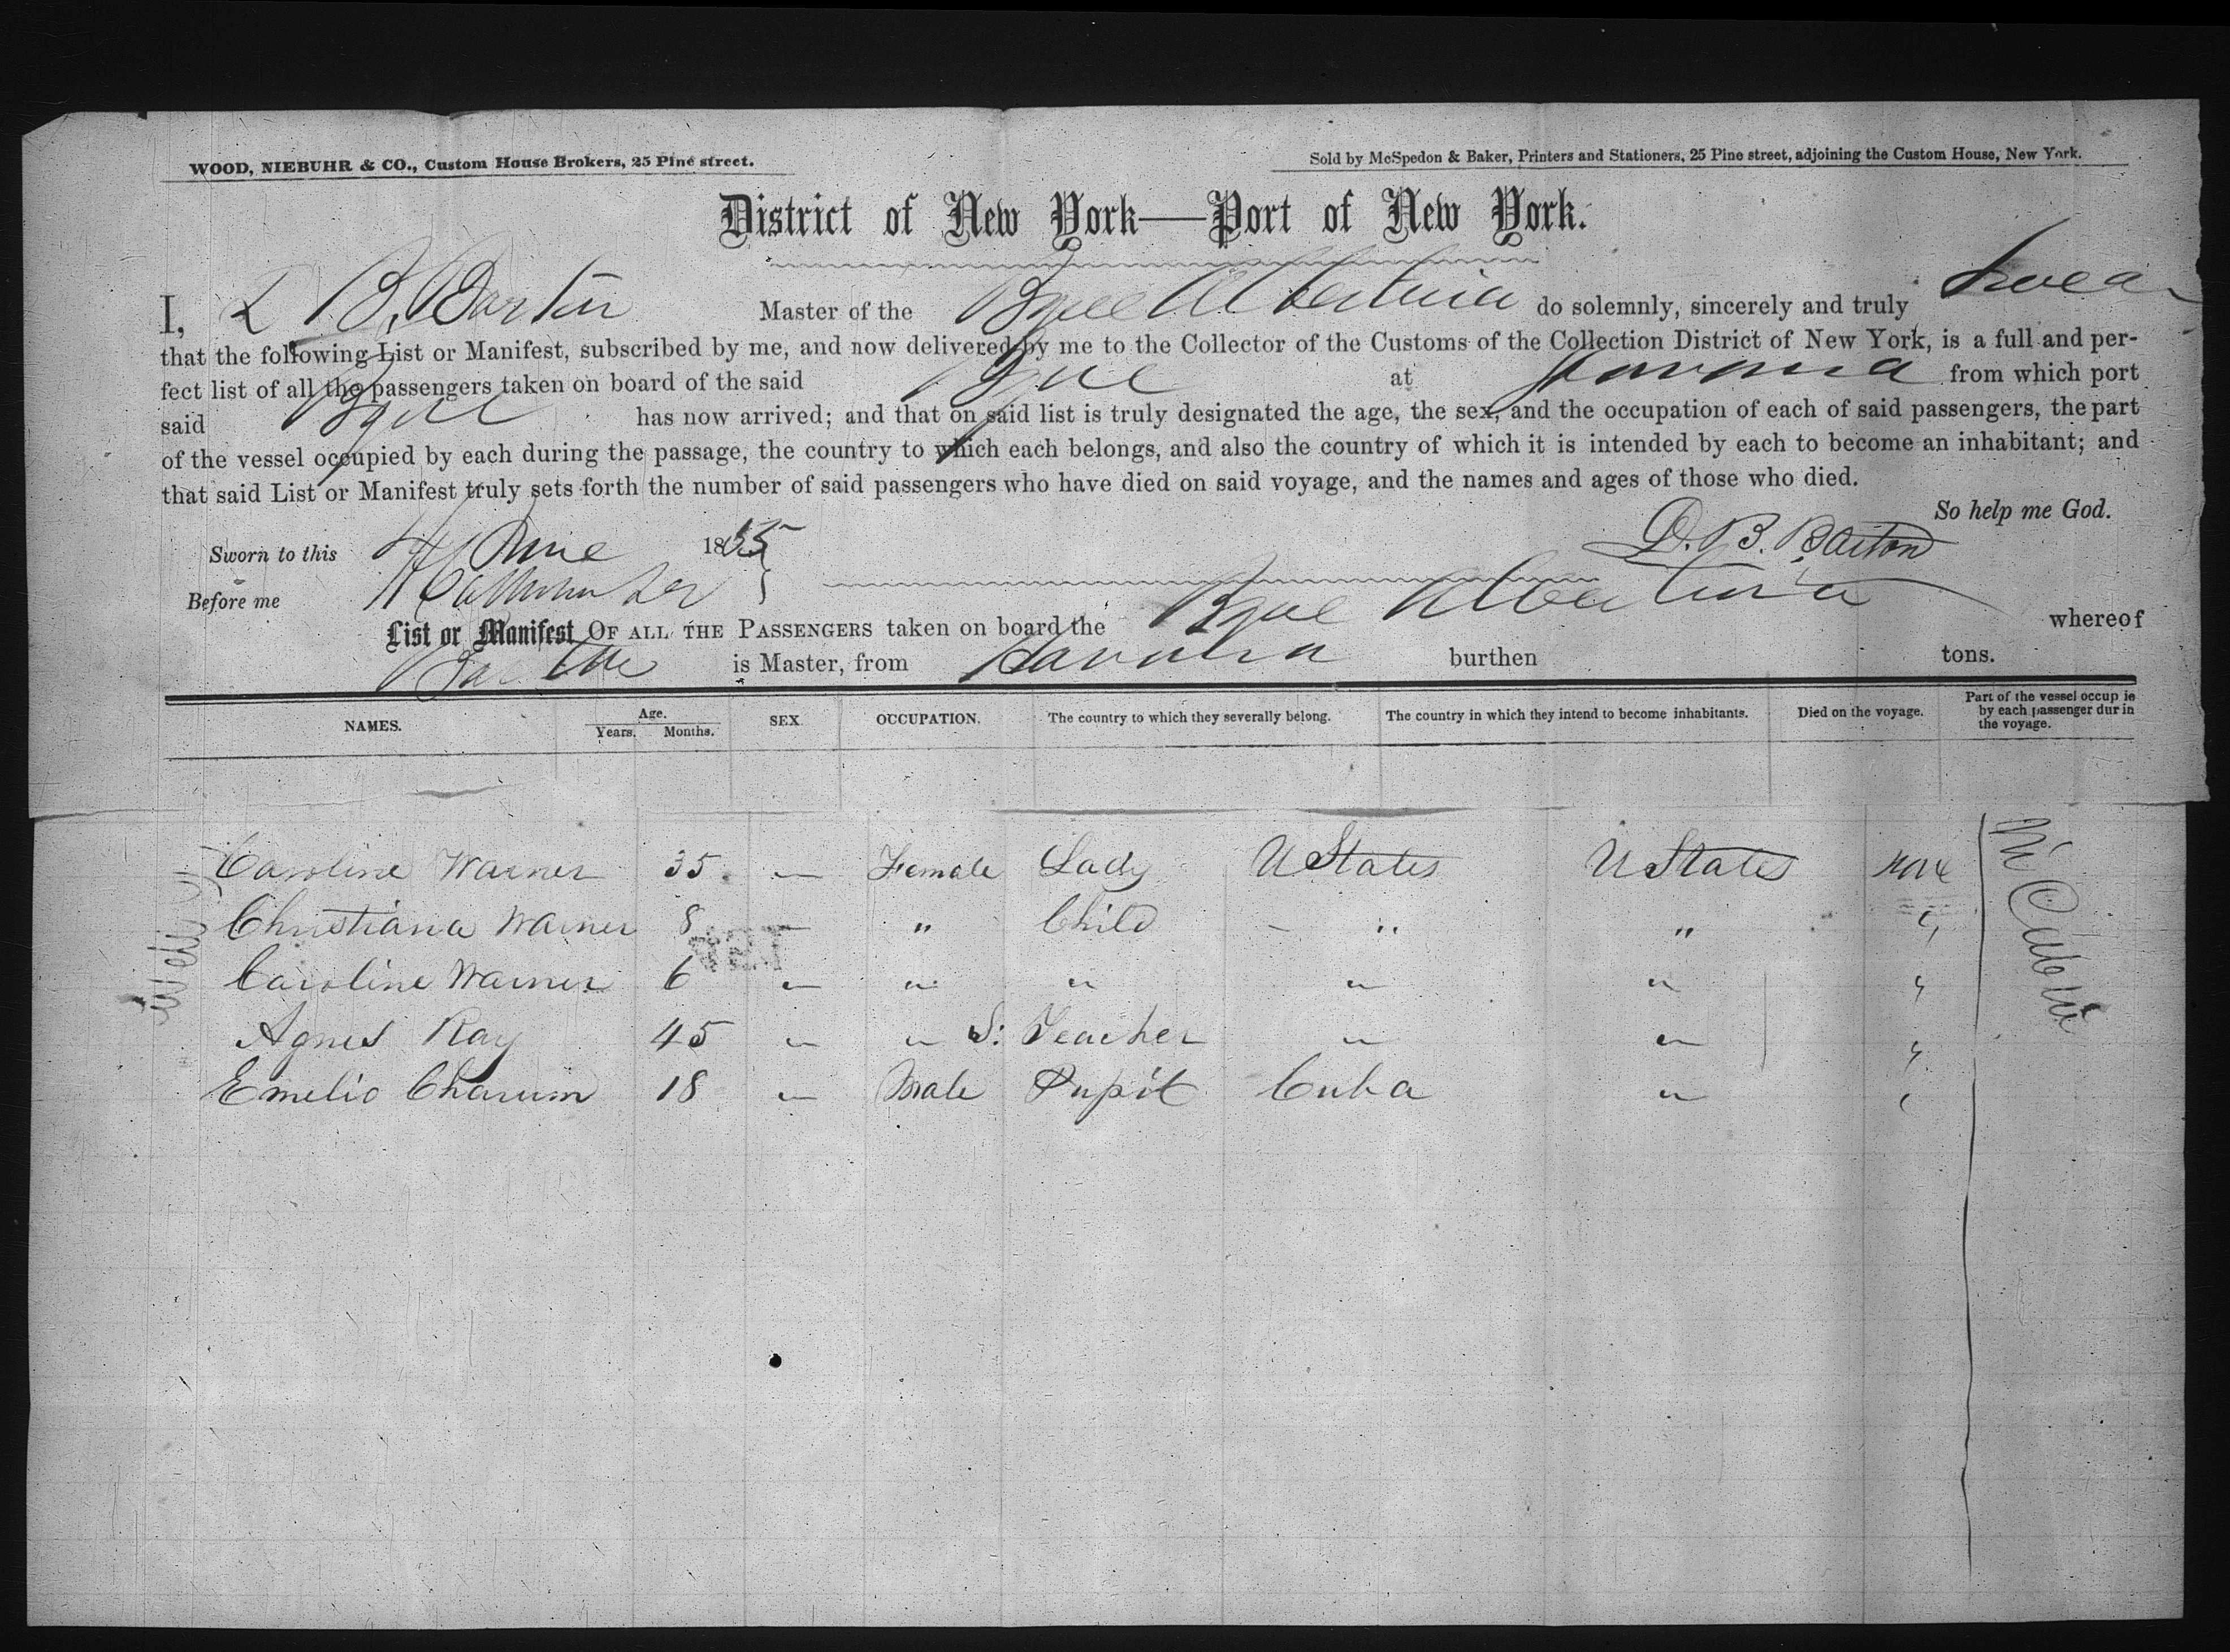 WOOD, NIEBUHR & CO., Custom House Brokers, 25 Pine street.
Sold by McSpedon & Baker, Printers and Stationers, 25 Pine street, adjoining the Custom House, New York.
District of New York—Port of New York.
I, D B. Barton Master of the Bque Albertina do solemnly, sincerely and truly Swear
that the following List or Manifest, subscribed by me, and now delivered by me to the Collector of the Customs of the Collection District of New York, is a full and per-
fect list of all the passengers taken on board of the said Bque at Havana from which port
said Bque has now arrived; and that on said list is truly designated the age, the sex, and the occupation of each of said passengers, the part
of the vessel occupied by each during the passage, the country to which each belongs, and also the country of which it is intended by each to become an inhabitant; and
that said List or Manifest truly sets forth the number of said passengers who have died on said voyage, and the names and ages of those who died.
So help me God.
D. B. Barton
Sworn to this 4 June 1855
Before me
List or Manifest OF ALL THE PASSENGERS taken on board the Bque Albertina whereof
is Master, from Havana burthen tons.
NAMES. Age. Years. Months. SEX. OCCUPATION. The country to which they severally belong. The country in which they intend to become inhabitants. Died on the voyage. Part of the vessel occup ie by each passenger dur in the voyage.
Caroline Warner 35 — Female Lady U States U States
Christiana Warner 8 — " Child " " "
Caroline Warner 6 " " " " " "
Agnes Ray 45 " " S: Teacher " " "
Emelio Charum 18 " Male Pupil Cuba " "
In Cabin